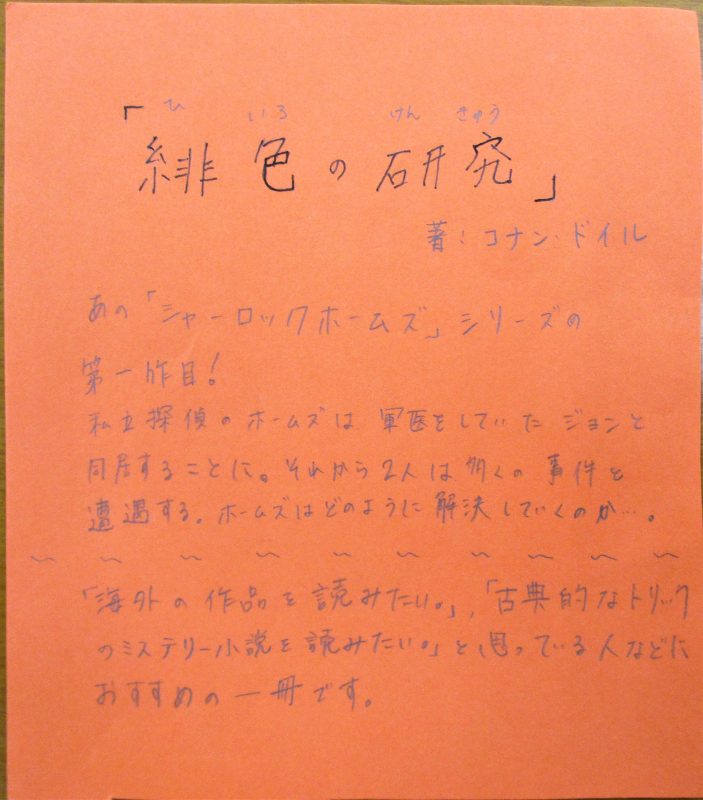 ひ いろ けん きゅう
「緋色の研究」
著:コナン・ドイル
あの「シャーロックホームズ」シリーズの
第一作目!
私立探偵のホームズは軍医をしていたジョンと
同居することに。それから2人は多くの事件と
遭遇する。ホームズはどのように解決していくのか…。
~ ~ ~ ~ ~ ~ ~ ~ ~ ~
「海外の作品を読みたい。」,「古典的なトリック
のミステリー小説を読みたい。」と思っている人などに
おすすめの一冊です。